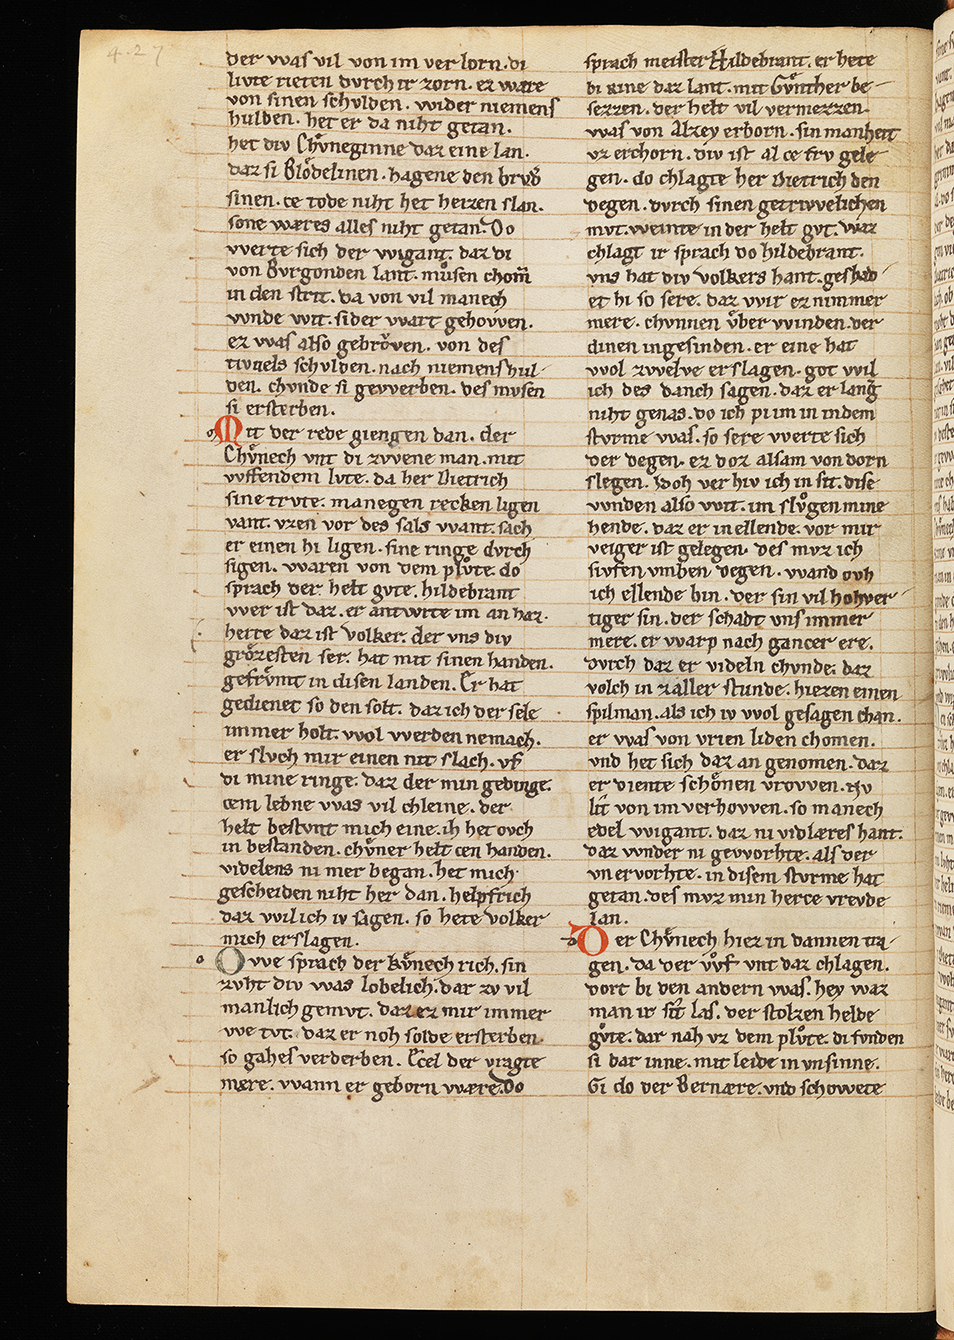 4.27
der was vil von im ver lorn. di
livte rieten dvrch ir zorn. ez wære
von sinen schvlden. wider niemens
hulden. het er da niht getan.
het div Chv̂neginne daz eine lan.
daz si Blo̊delinen. hagene den brvd͛
sinen. ce tode niht het heizen slan.
sone wæres alles niht getan. Do
werte sich der wigant. daz di
von Bvrgonden lant. mv̊sen chom̄
in den strit. da von vil manech
wnde wit. sider wart gehowen.
ez was also gebrowen. von des
tivuels schvlden. nach niemens hul
den. chvnde si gewerben. des mvsen
si ersterben.
Mit der rede giengen dan. der
Chv̊nech vnt di zwene man. mit
wffendem lvte. da her Dietrich
sine trvte. manegen recken ligen
vant. vzen vor des sals want. sach
er einen hi ligen. sine ringe dvrch
sigen. waren von dem plv̊te. do
sprach der helt gvte. hildebrant
wer ist daz. er antwrte im an haz.
herre daz ist Volker. der vns div
gro̊zesten ser. hat mit sinen handen.
gefrv̊mt in disen landen. Er hat
gedienet so den solt. daz ich der sele
immer holt. wol werden nemach.
er slvch mir einen nit slach. vf
di mine ringe. daz der min gedinge.
cem lebne was vil chleine. der
helt bestvnt mich eine. ih het ovch
in bestanden. chv̊ner helt cen handen.
videlens ni mer began. het mich
gescheiden niht her dan. helpfrich
daz wil ich iv sagen. so hete Volker
mich erslagen.
Owe sprach der kv̊nech rich. sin
zvht div was lobelich. dar zv vil
manlich gemvt. daz ez mir immer
we tvt. daz er noh solde ersterben.
so gahes verderben. Ecel der vragte
mære. wann er geborn wære. Do
sprach meister Hildebrant. er hete
bi Rine daz lant. mit Gv̊nther be
sezzen. der helt vil vermezzen.
was von Alzey erborn. sin manheit
vz erchorn. div ist al ce frv gele
gen. do chlagte her Dietrich den
degen. dvrch sinen getriwelichen
mvt. weinte in der helt gvt. waz
chlagt ir sprach do hildebrant.
vns hat div Volkers hant. geshad
et hi so sere. daz wir ez nimmer
mere. chvnnen v̊ber winden. der
dinen ingesinden. er eine hat
wol zwelve erslagen. got wil
ich des danch sagen. daz er lang̅
niht genas. do ich pi im in indem
stvrme was. so sere werte sich
der degen. ez doz alsam von dorn
slegen. Noh ver hiv ich in sit. dise
wnden also wit. im slv̊gen mine
hende. daz er in ellende. vor mir
veiger ist gelegen. des mvz ich
sivfen vmben degen. wand ovh
ich ellende bin. der sin vil hohver
tiger sin. der schadt vns immer
mere. er warp nach gancer ere.
dvrch daz er videln chvnde. daz
volch in zaller stunde. hiezen einen
spilman. als ich iv wol gesagen chan.
er was von vrien liden chomen.
vnd het sich daz an genomen. daz
er diente scho̊nen vrowen. Nv
lit̄ von im verhowen. so manech
edel wigant. daz ni vidlæres hant.
daz wnder ni geworhte. als der
vnervorhte. in disem stvrme hat
getan. des mvz min herce vrevde
lan.
Der Chv̊nech hiez in dannen tra
gen. da der wf vnt daz chlagen.
dort bi den andern was. hey waz
man ir sit̄ las. der stolzen helde
gv̊te. dar nah vz dem plv̊te. di fvnden
si dar inne. mit leide in vnsinne.
Gi do der Bernære. vnd schowete